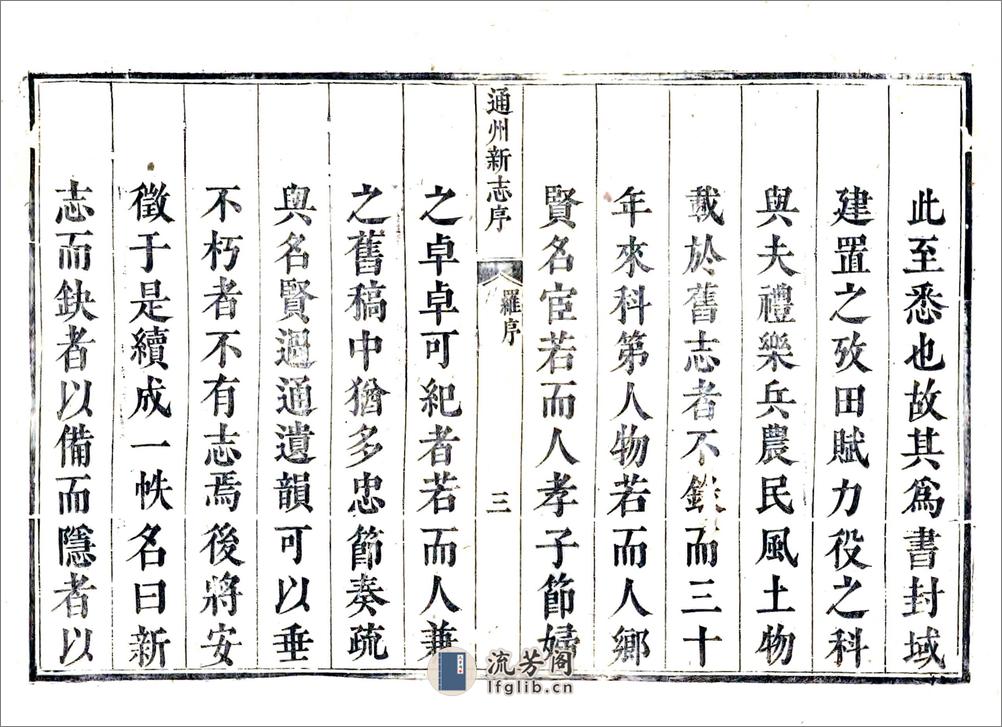 此至悉也故其爲書封域
建置之攷田賦力役之科
與夫禮樂兵農民風土物
載於舊志者不錄而三十
年來科第人物若而人鄉
賢名宦若而人孝子節婦
通州新志序
羅序
三
之卓卓可紀者若而人兼
之舊稿中猶多忠節奏疏
與名賢過通遺韻可以垂
不朽者不有志焉後將安
徵于是續成一帙名曰新
志而缺者以備而隱者以
流芳阁
lfglib.cn